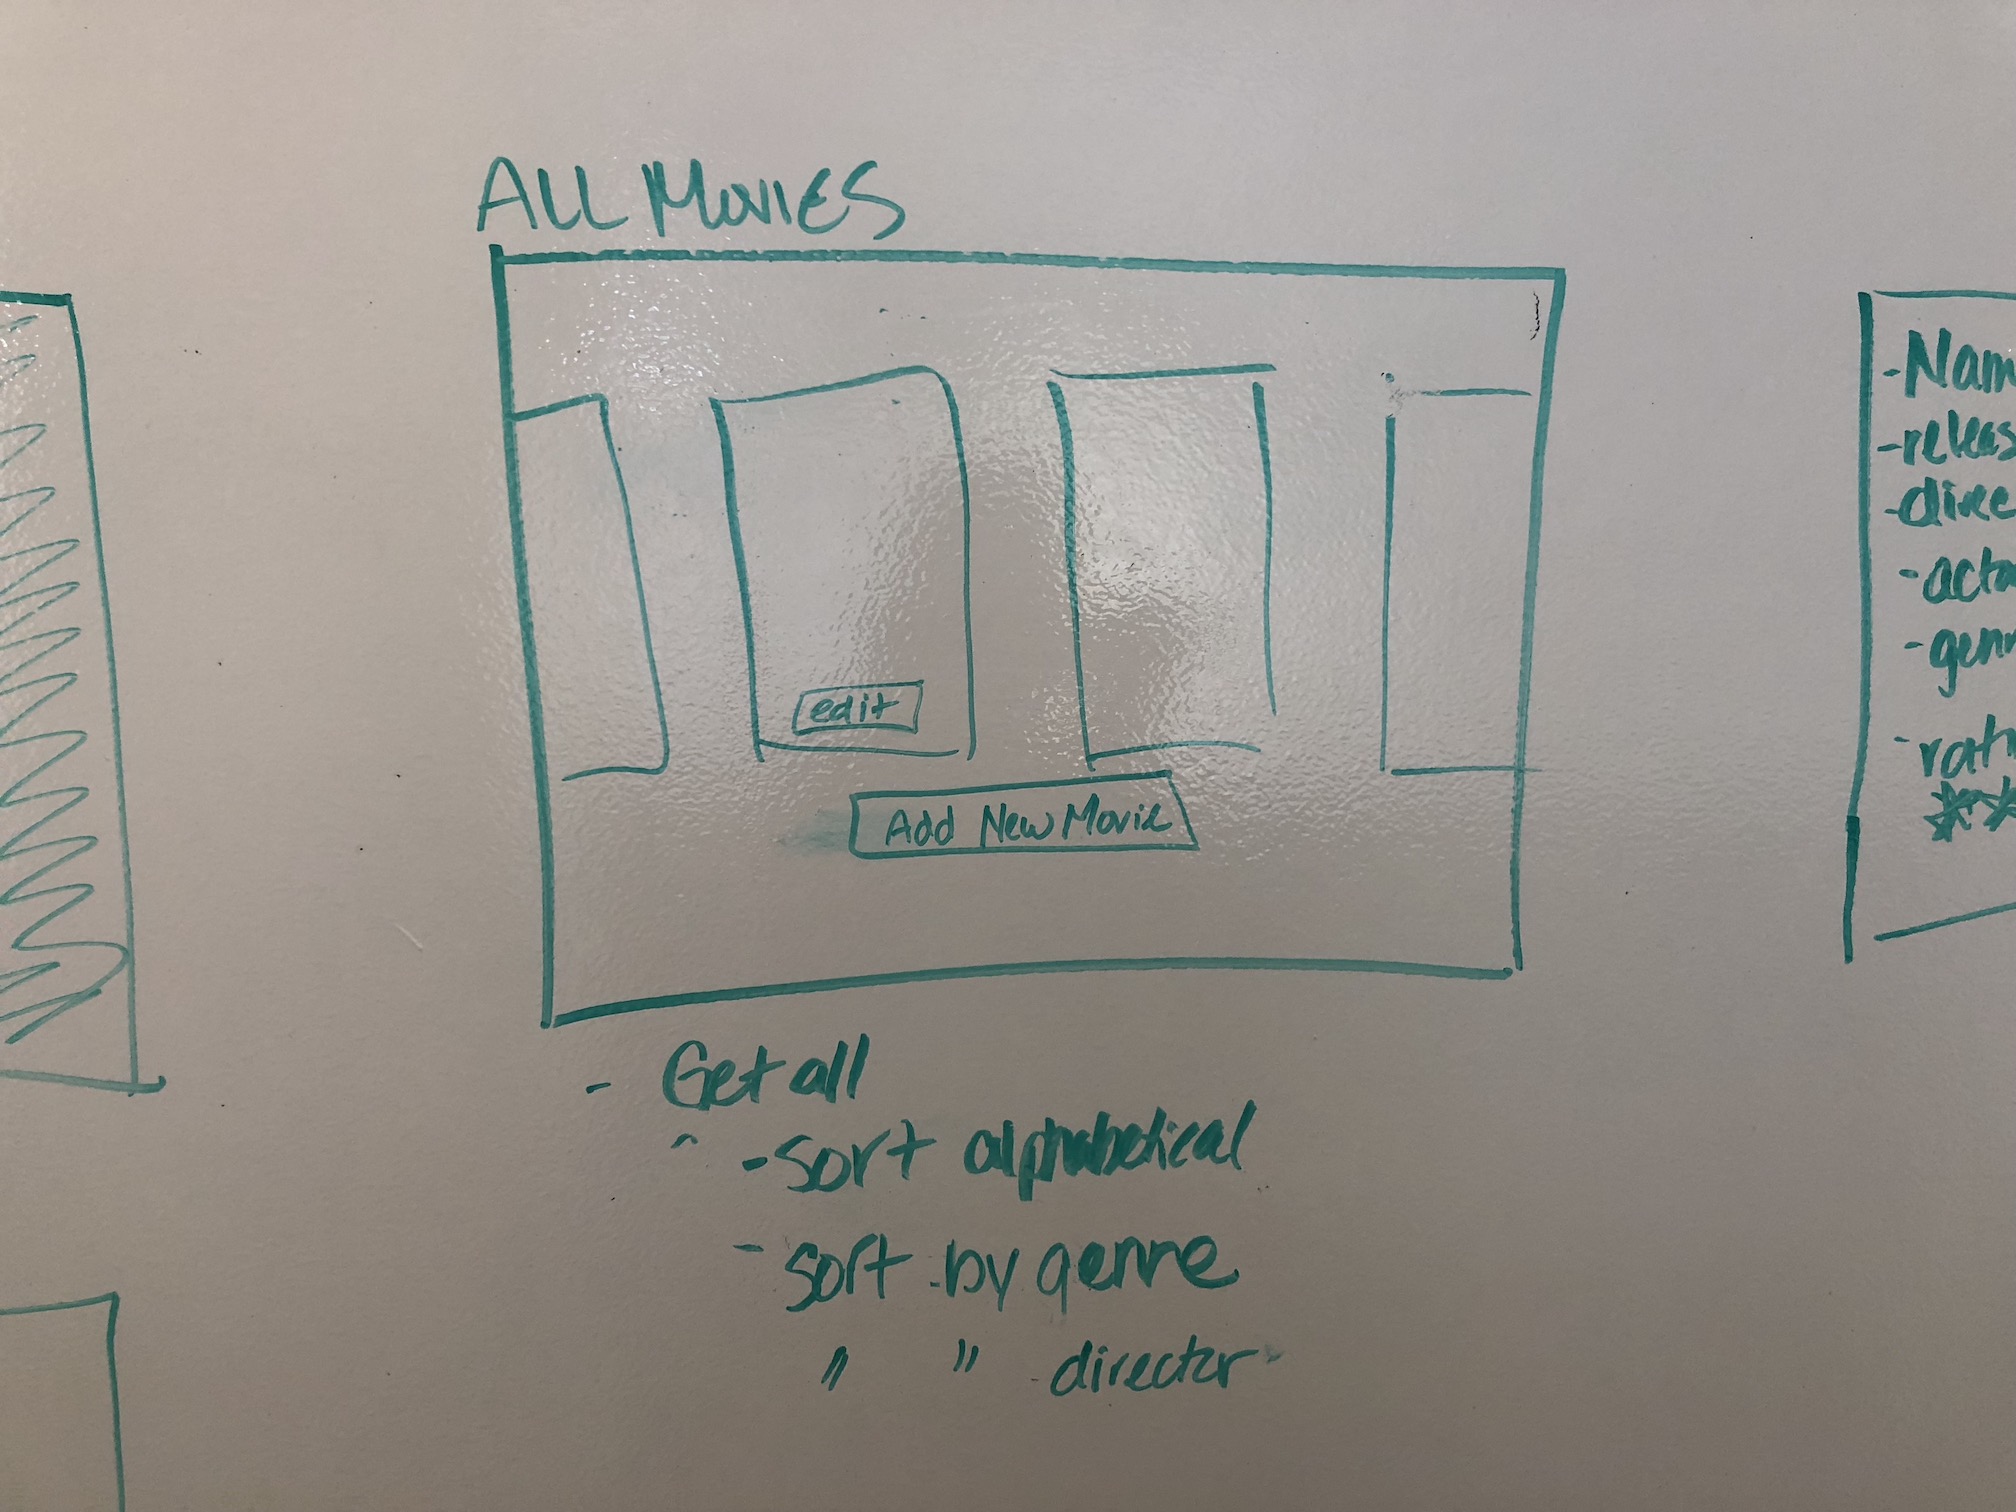 ALL MOVIES
edit
Add New Movie
- Get all
- sort alphabetical
- sort by genre
" " director
- Nam
- releas
- direc
- acto
- genr
- rati
**